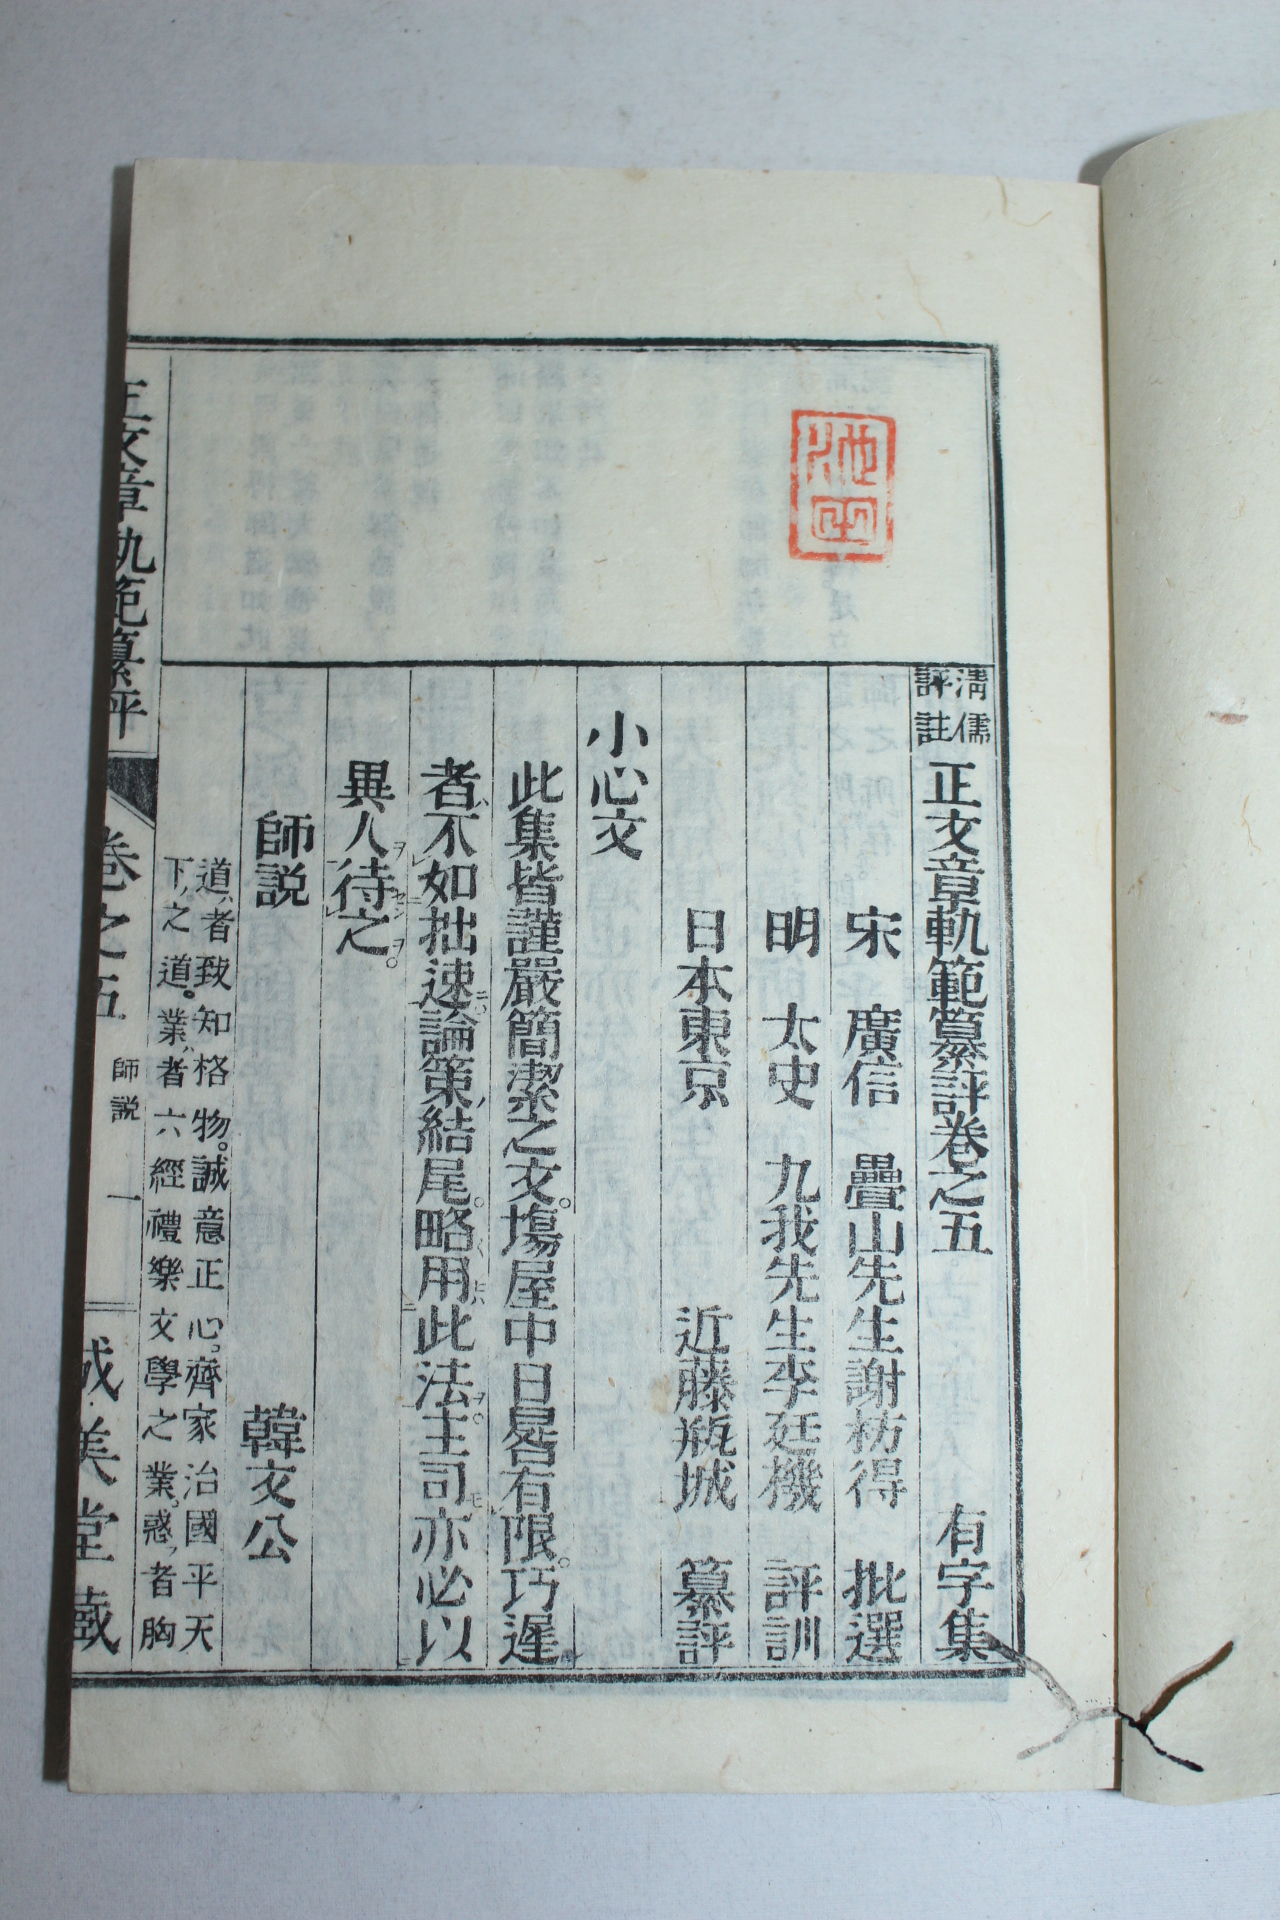 清儒
評註
正文章軌範纂評卷之五 有字集
宋 廣信 疊山先生謝枋得 批選
明 太史 九我先生李廷機 評訓
日本東京 近藤瓶城 纂評
小心文
此集皆謹嚴簡潔之文。塲屋中日晷有限。巧遲
者不如拙速。論策結尾。略用此法。主司亦必以
異人待之。
師説 韓文公
道者致知格物。誠意正心。齊家治國平天
下之道。業者六經禮樂文學之業。惑者胸
正文章軌範纂評 卷之五 師説 一 誠美堂藏
池田